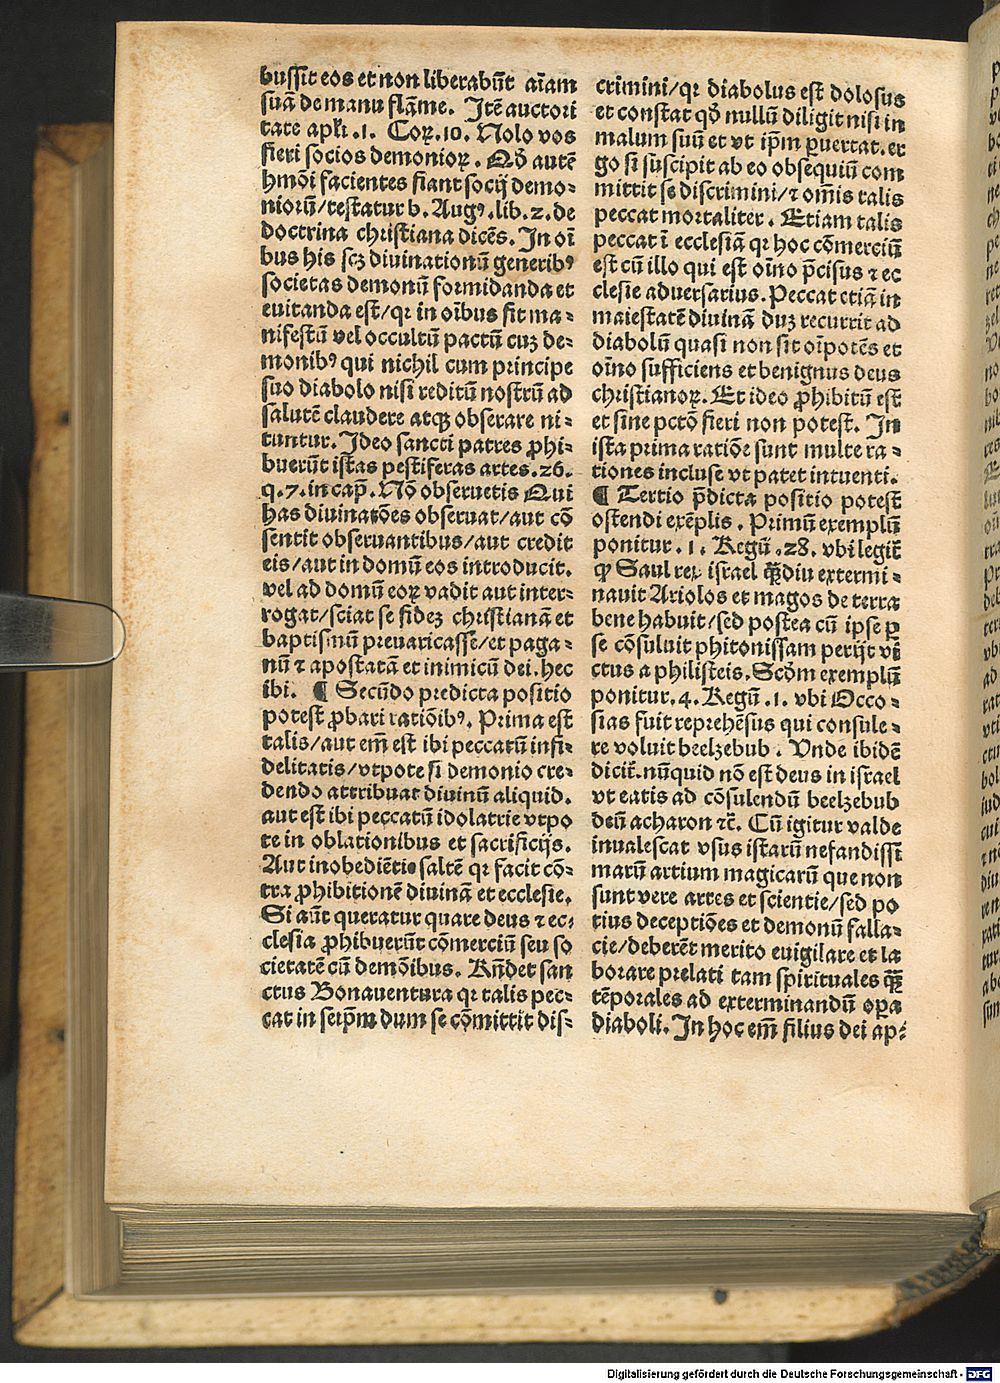 bussit eos et non liberabūt aīam
suā de manu flāme. Itē auctori
tate apłi .1. Coꝝ.10. Nolo vos
fieri socios demonioꝝ. Qđ autē
hmōi facientes fiant socij demo-
niorū/testatur b. Augꝰ.lib.2. de
doctrina christiana dicēs. In oī
bus his scꝫ diuinationū generibꝰ
societas demonū formidanda et
euitanda est/qꝛ in oībus fit ma-
nifestū vel occultū pactū cuꝫ de-
monibꝰ qui nichil cum principe
suo diabolo nisi reditū nostrū ad
salutē claudere atqꝫ obserare ni-
tuntur. Ideo sancti patres ꝓhi-
buerūt istas pestiferas artes. 26.
q.7. in cap̄. Nō obseruetis Qui
has diuinatōes obseruat/aut cō
sentit obseruantibus/aut credit
eis/aut in domū eos introducit.
vel ad domū eoꝝ vadit aut inter-
rogat/sciat se fideꝫ christianā et
baptismū preuaricasse/et paga-
nū ⁊ apostatā et inimicū dei. hec
ibi. ¶ Secūdo predicta positio
potest ꝓbari ratiōibꝰ. Prima est
talis/aut em̄ est ibi peccatū infi-
delitatis/vtpote si demonio cre-
dendo attribuat diuinū aliquid.
aut est ibi peccatū idolatrie vtpo
te in oblationibus et sacrificijs.
Aut inobediētie saltē qꝛ facit cō-
tra ꝓhibitionē diuinā et ecclesie.
Si aūt queratur quare deus ⁊ ec-
clesia ꝓhibuerūt cōmerciū seu so
cietatē cū demōibus. Rn̄det san
ctus Bonauentura qꝛ talis pec-
cat in seip̄m dum se cōmittit dis-
crimini/qꝛ diabolus est dolosus
et constat qđ nullū diligit nisi in
malum suū et vt ip̄m ꝑuertat. er
go si suscipit ab eo obsequiū com
mittit se discrimini/⁊ om̄is talis
peccat mortaliter. Etiam talis
peccat ī ecclesiā qꝛ hoc cōmerciū
est cū illo qui est oīno p̄cisus ⁊ ec
clesie aduersarius. Peccat etiā in
maiestatē diuinā duꝫ recurrit ad
diabolū quasi non sit oīpotēs et
oīno sufficiens et benignus deus
christianoꝝ. Et ideo ꝓhibitū est
et sine pctō fieri non potest. In
ista prima ratiōe sunt multe ra-
tiones incluse vt patet intuenti.
¶ Tertio p̄dicta positio potest
ostendi exēplis. Primū exemplū
ponitur .1. Regū .28. vbi legit̄
ꝙ Saul rex israel qꝫdiu extermi-
nauit Ariolos et magos de terra
bene habuit/sed postea cū ipse ꝑ
se cōsuluit phitonissam perijt vī
ctus a philisteis. Scđm exemplū
ponitur .4. Regū .1. vbi Occo-
sias fuit reprehēsus qui consule-
re voluit beelzebub. Vnde ibidē
dicit̄. nūquid nō est deus in israel
vt eatis ad cōsulendū beelzebub
deū acharon ⁊c̄. Cū igitur valde
inualescat vsus istarū nefandissi
marū artium magicarū que non
sunt vere artes et scientie/sed po
tius deceptiōes et demonū falla-
cie/deberēt merito euigilare et la
borare prelati tam spirituales qꝫ
tēporales ad exterminandū oꝑa
diaboli. In hoc em̄ filius dei ap-
Digitalisierung gefördert durch die Deutsche Forschungsgemeinschaft - DFG